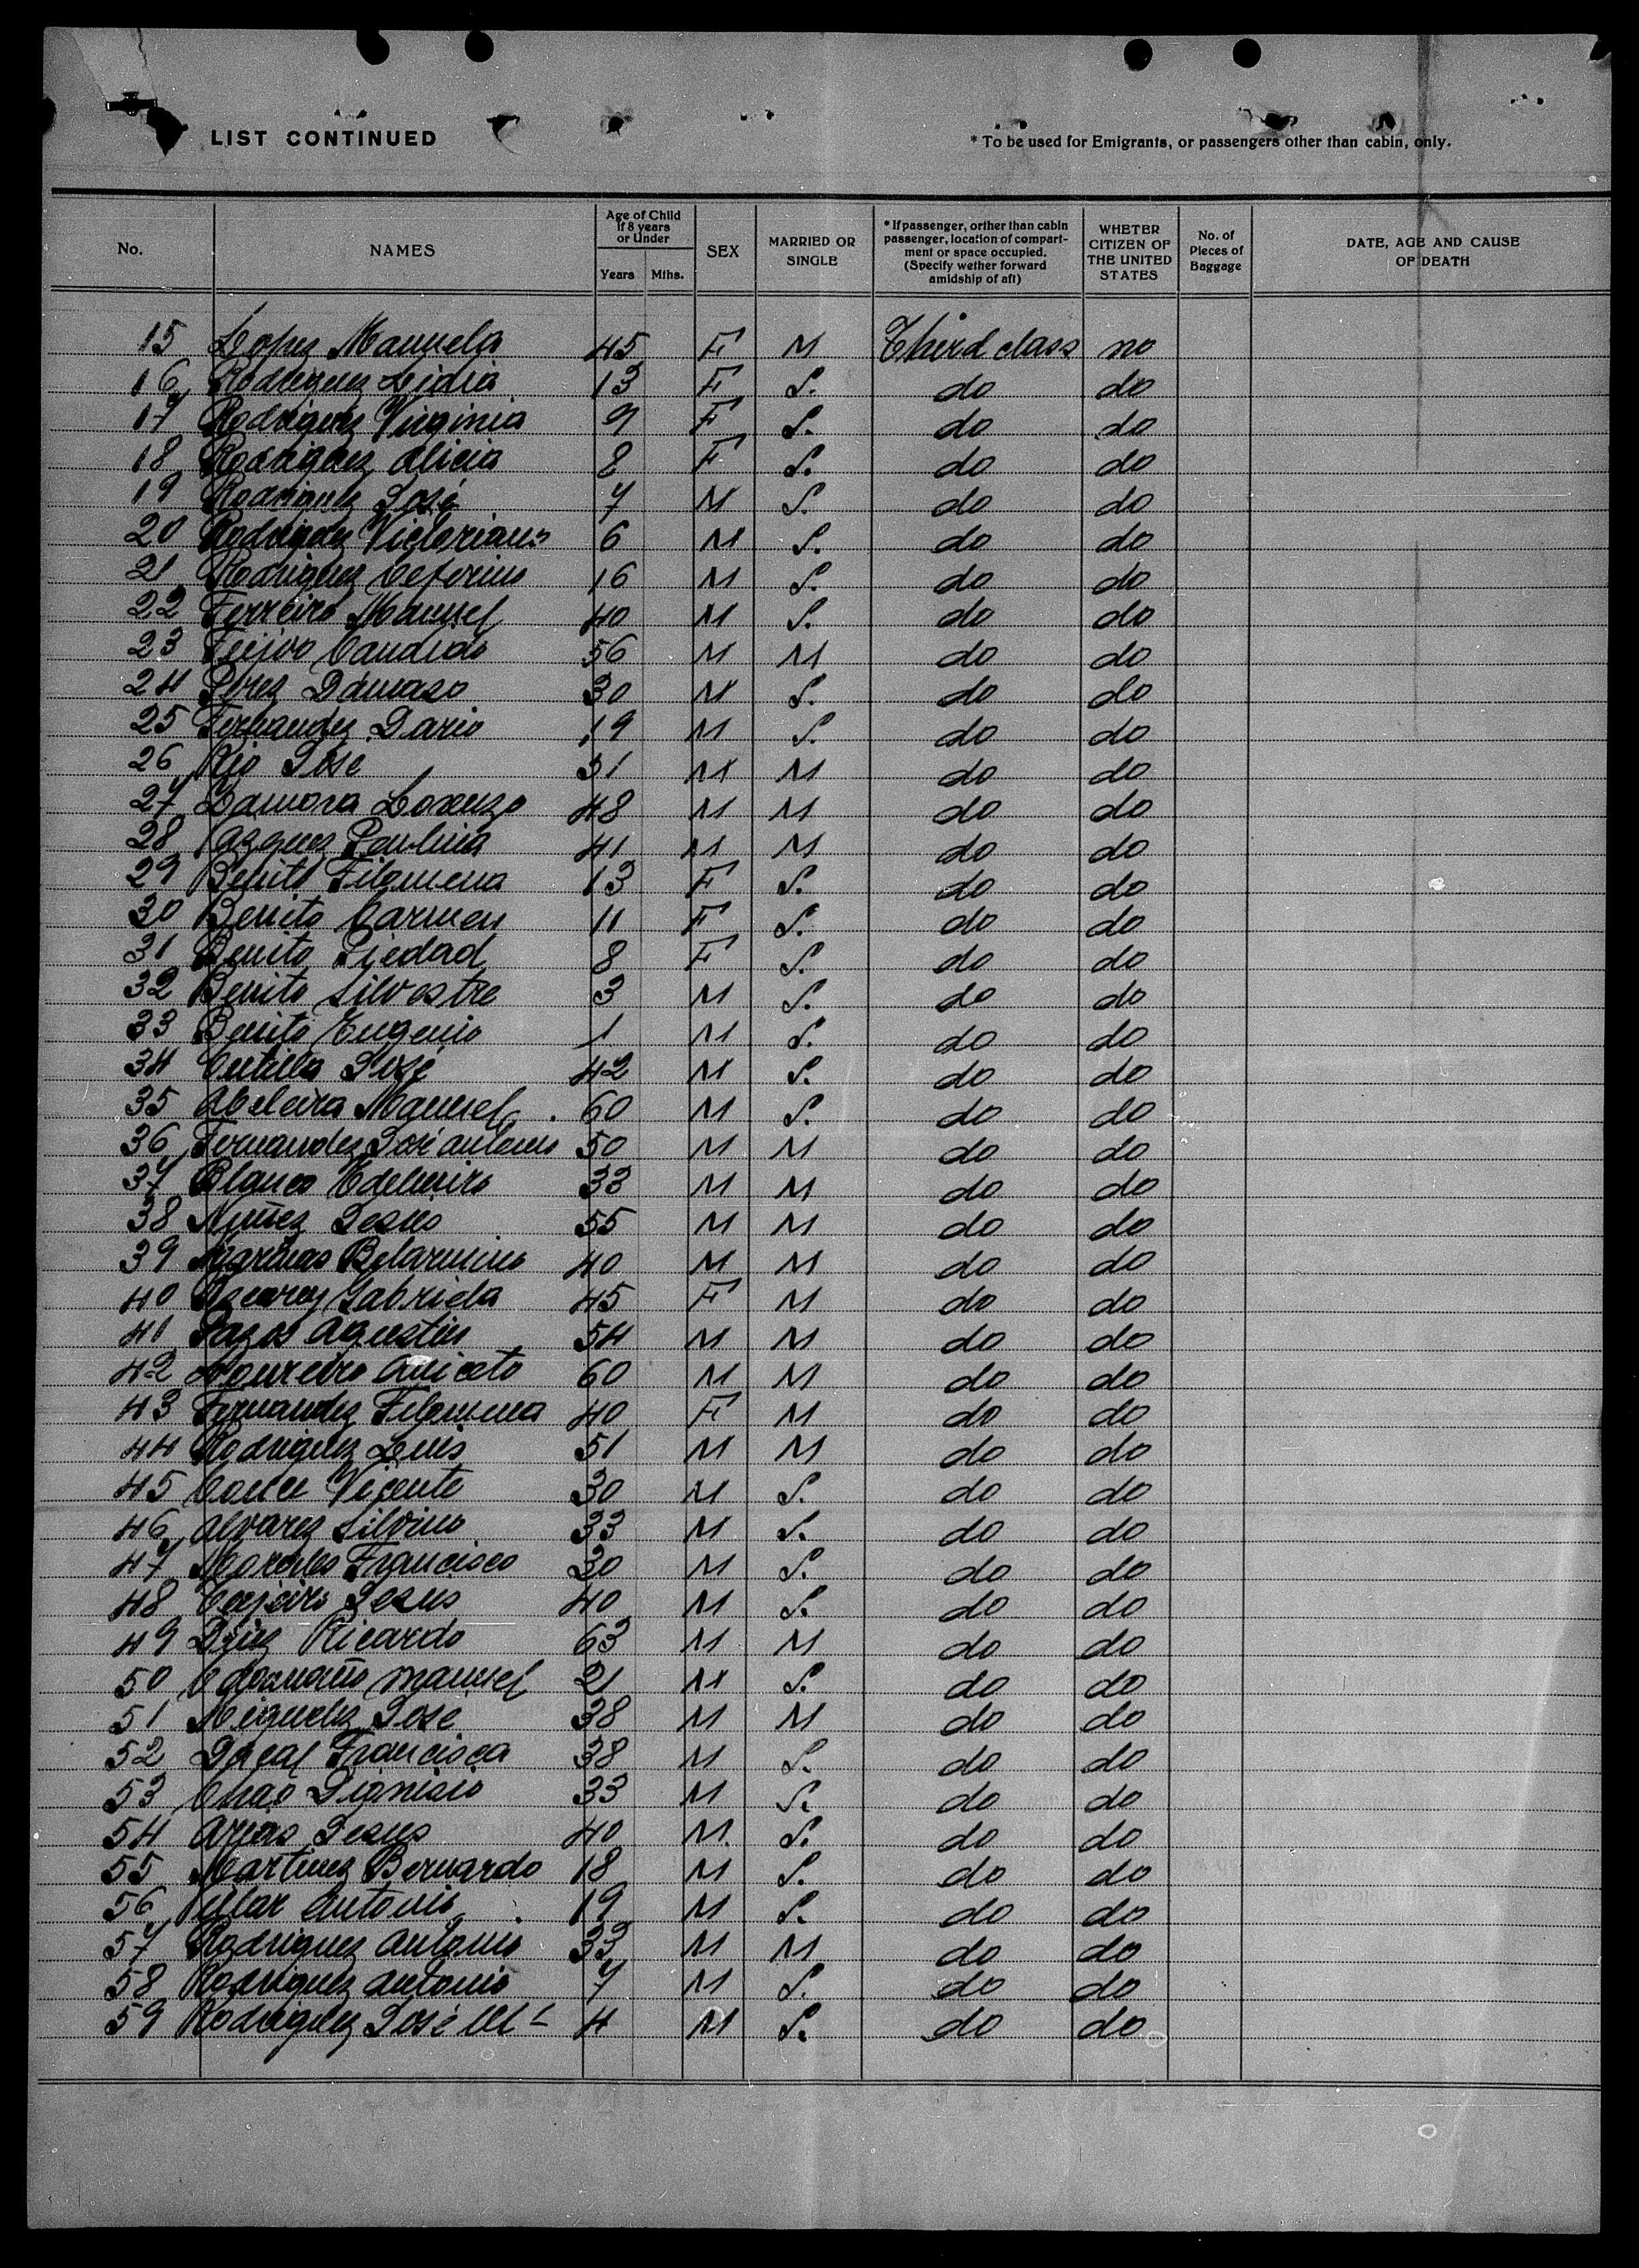 LIST CONTINUED
* To be used for Emigrants, or passengers other than cabin, only.
No. NAMES Age of Child If 8 years or Under Years Mths. SEX MARRIED OR SINGLE * If passenger, orther than cabin passenger, location of compartment or space occupied. (Specify wether forward amidship of aft) WHETER CITIZEN OF THE UNITED STATES No. of Pieces of Baggage DATE, AGE AND CAUSE OF DEATH
15 Lopez Manuela 45 F M Third class no
16 Rodriguez Lidia 13 F S. do do
17 Rodriguez Virginia 9 F S. do do
18 Rodriguez Alicia 8 F S. do do
19 Rodriguez José 7 M S. do do
20 Rodriguez Victoriano 6 M S. do do
21 Rodriguez Ceferino 16 M S. do do
22 Ferreiro Manuel 40 M S. do do
23 Feijoo Candido 56 M M do do
24 Perez Damaso 30 M S. do do
25 Fernandez Dario 19 M S. do do
26 Rio José 31 M M do do
27 Zamora Lorenzo 48 M M do do
28 Vazquez Paulina 41 M M do do
29 Benito Filomena 13 F S. do do
30 Benito Carmen 11 F S. do do
31 Benito Piedad 8 F S. do do
32 Benito Silvestre 3 M S. do do
33 Benito Eugenio 1 M S. do do
34 José 42 M S. do do
35 Abeleira Manuel 60 M S. do do
36 Fernandez José Antonio 50 M M do do
37 Blanco Edelmiro 33 M M do do
38 Nuñez Jesus 55 M M do do
39 Belarmino 40 M M do do
40 Gabriela 45 F M do do
41 Pazos Agustin 54 M M do do
42 Moureiro Aniceto 60 M M do do
43 Fernandez Filomena 40 F M do do
44 Rodriguez Luis 51 M M do do
45 Vicente 30 M S. do do
46 Alvarez Silvino 33 M S. do do
47 Francisco 30 M S. do do
48 Jesus 40 M S. do do
49 Ricardo 63 M M do do
50 Manuel 21 M S. do do
51 Miguelez José 38 M M do do
52 Francisca 38 M S. do do
53 Chao Dionisio 33 M S. do do
54 Jesus 40 M S. do do
55 Martinez Bernardo 18 M S. do do
56 Villar Antonio 19 M S. do do
57 Rodriguez Antonio 33 M M do do
58 Rodriguez Antonio 7 M S. do do
59 Rodriguez José Mª 4 M S. do do